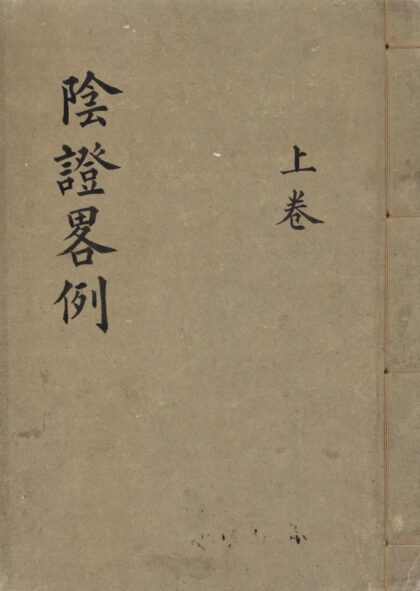 陰證畧例
上卷